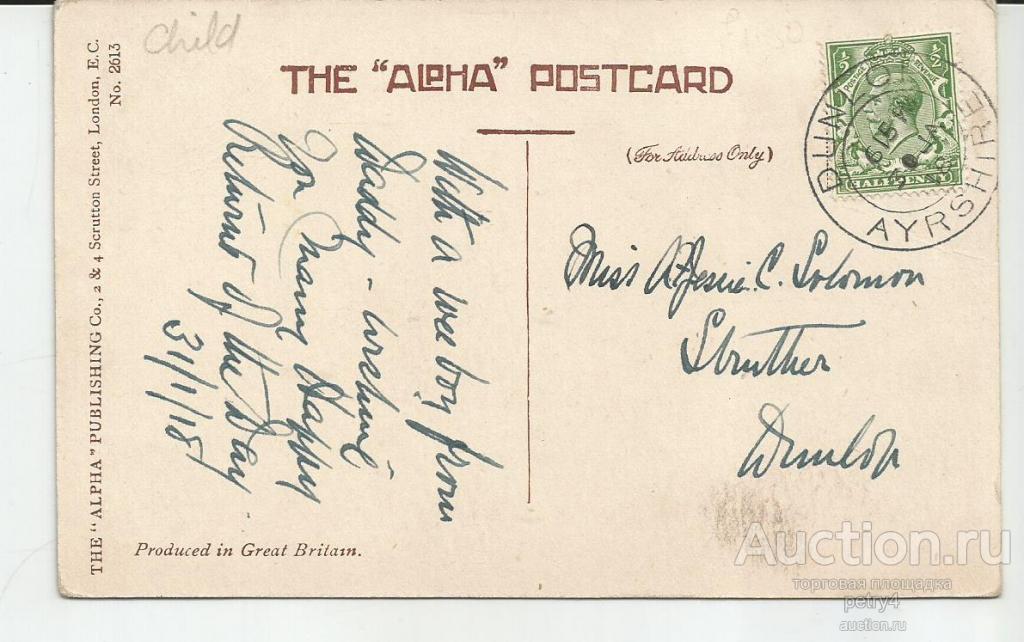 Child
THE "ALPHA" POSTCARD
(For Address Only)
THE "ALPHA" PUBLISHING Co., 2 & 4 Scrutton Street, London, E.C.
No. 2613
With a wee boy from
Daddy - wishing
you Many Happy
Returns of the Day
31/1/18
Miss A. Jessie C. Solomon
Struther
Dunlop
½ ½
POSTAGE REVENUE
HALFPENNY
DUNLOP
AYRSHIRE
Produced in Great Britain.
Auction.ru
торговая площадка
petry4
auction.ru